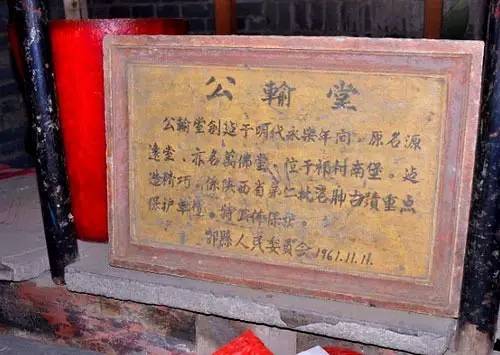 公輸堂
公輸堂創迠于明代永樂年间。原名源
遠堂、亦名萬佛堂、位于祁村南堡。迠
造精巧。係陕西省第二批名胜古蹟重点
保护單位。特保护。
鄠縣人民委員会1961.11.11.